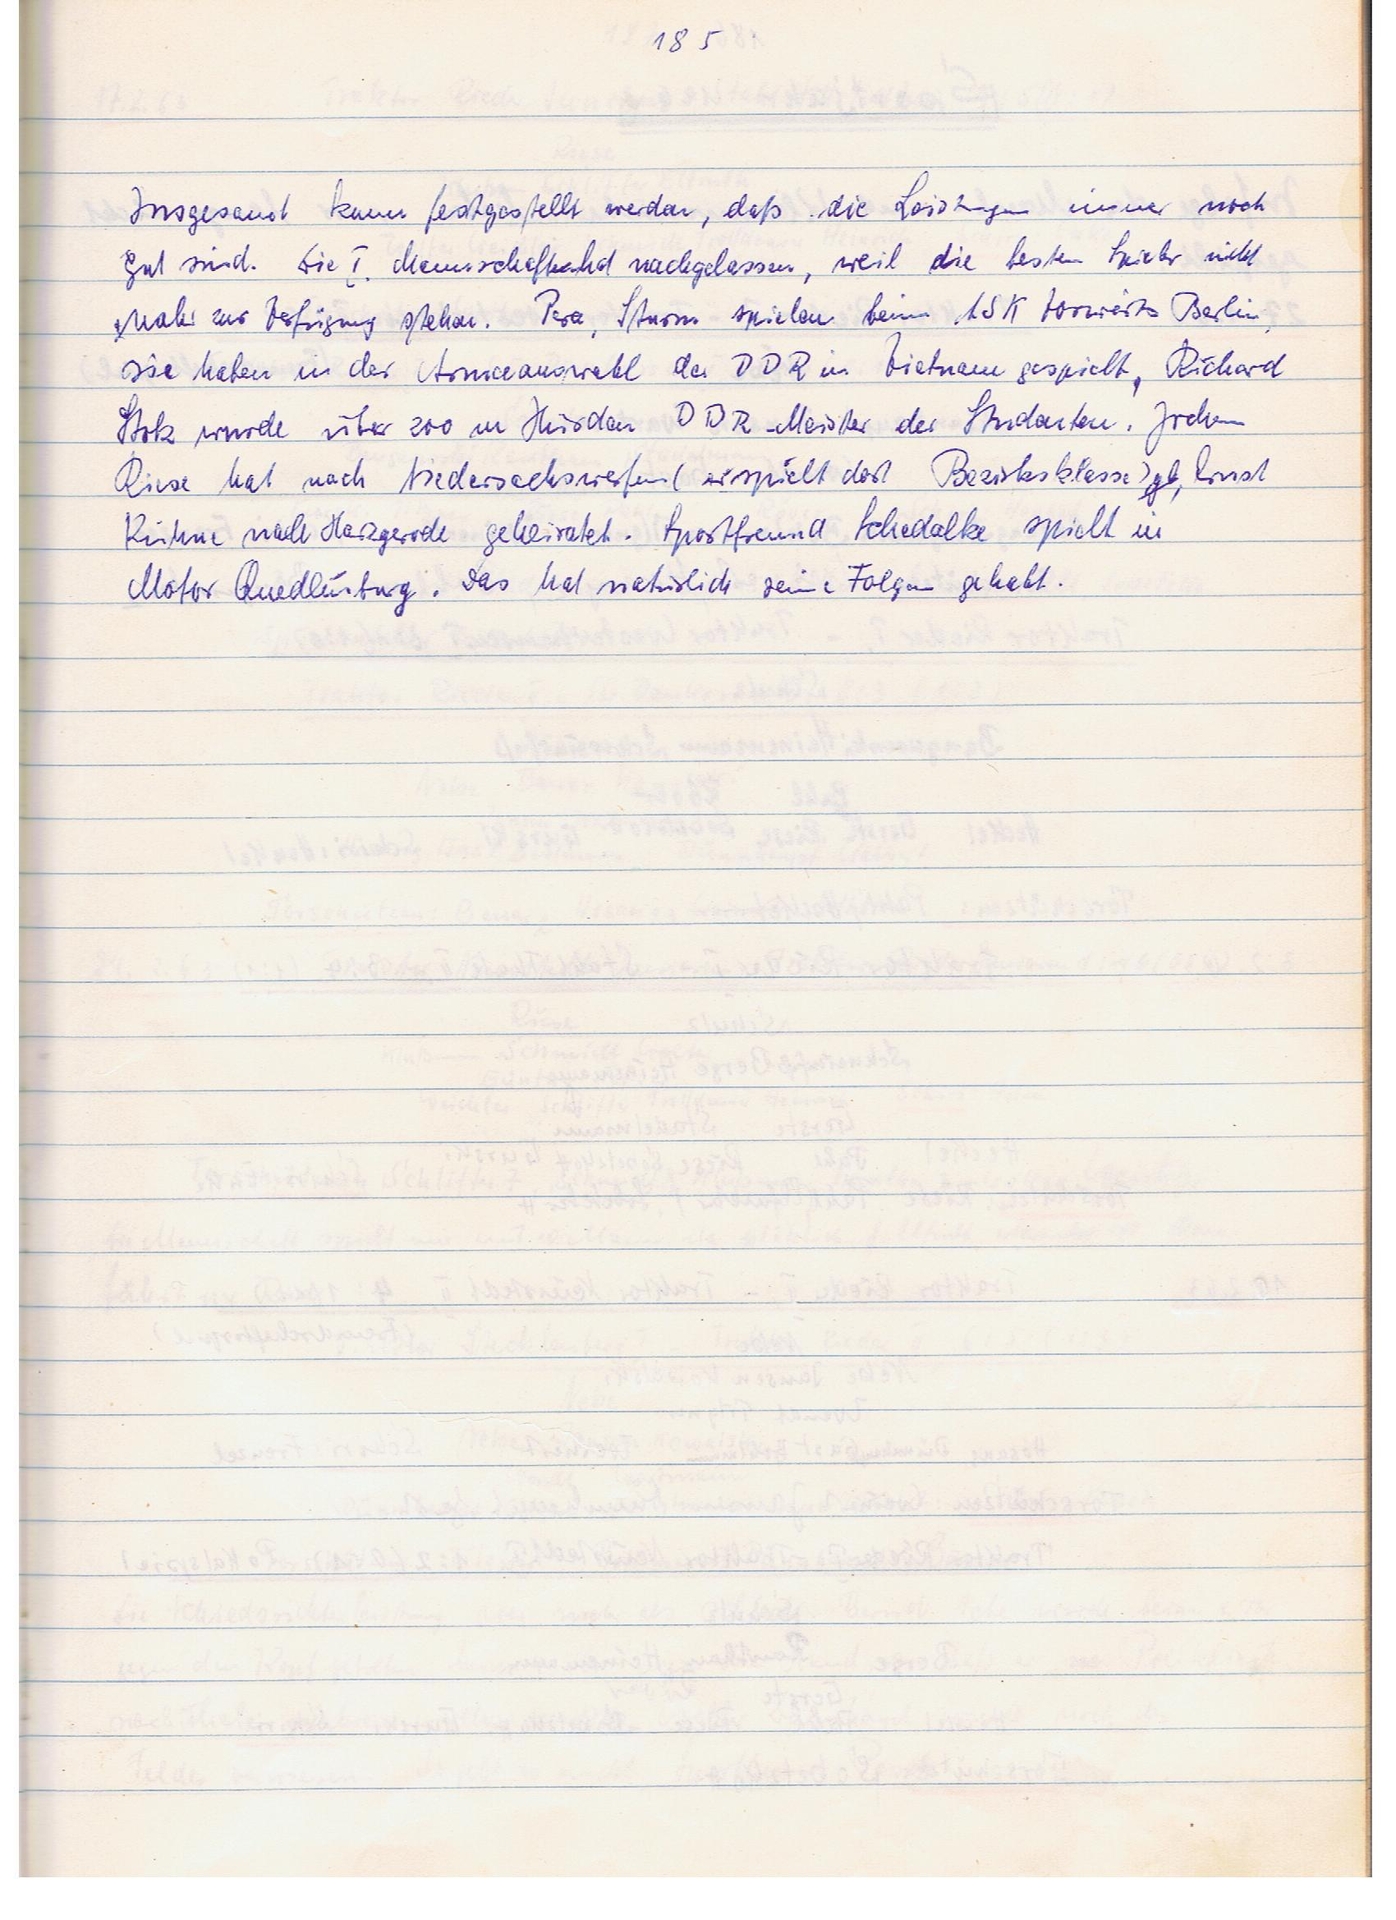 185
Insgesamt kann festgestellt werden, daß die Leistungen immer noch
gut sind. Die I. Mannschaft hat nachgelassen, weil die besten Spieler nicht
mehr zur Verfügung stehen. Pera, Sturm spielen beim ASK Vorwärts Berlin,
sie haben in der Armeeauswahl der DDR in Vietnam gespielt, Richard
Stolz wurde über 200 m Hürden DDR-Meister der Studenten. Jochen
Riese hat nach Niedersachswerfen (er spielt dort Bezirksklasse) Ernst
Kühne nach Harzgerode geheiratet. Sportfreund Schedalke spielt in
Motor Quedlinburg. Das hat natürlich seine Folgen gehabt.